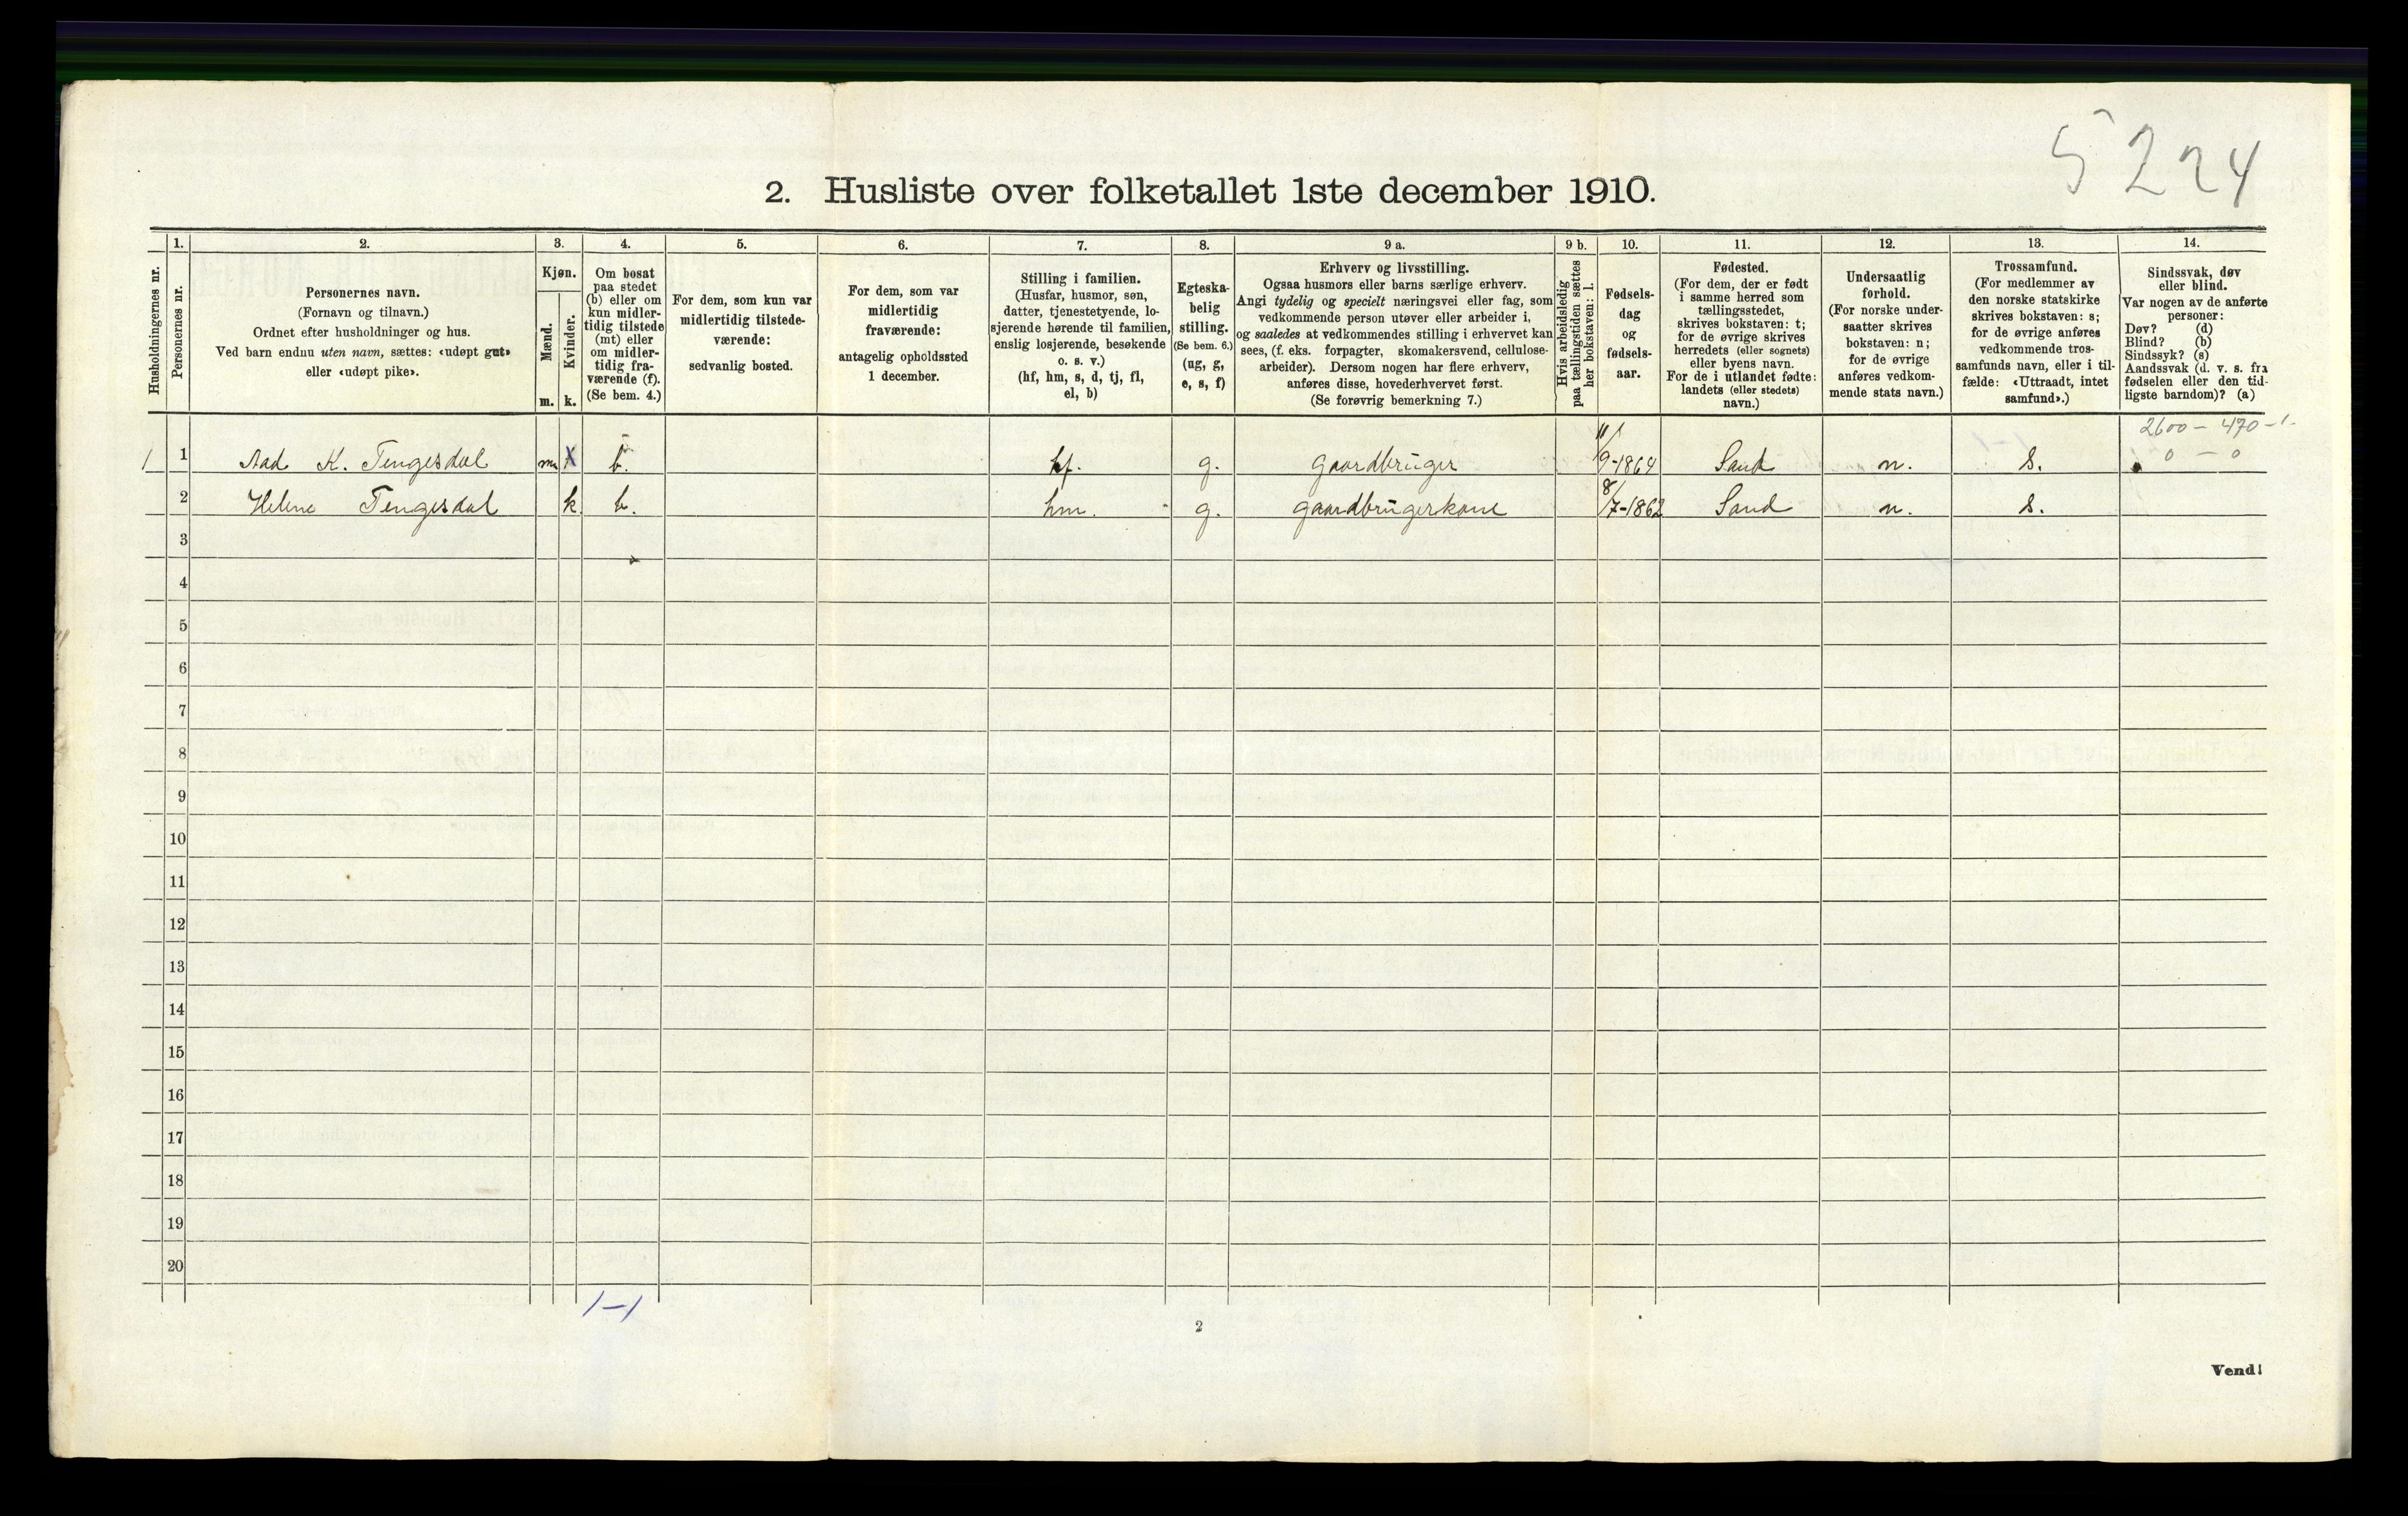 5224
2. Husliste over folketallet 1ste december 1910.
1. 2. 3. 4. 5. 6. 7. 8. 9 a. 9 b. 10. 11. 12. 13. 14.
Husholdningernes nr.
Personernes nr.
Personernes navn.
(Fornavn og tilnavn.)
Ordnet efter husholdninger og hus.
Ved barn endnu uten navn, sættes: «udøpt gut»
eller «udøpt pike».
Kjøn.
Mænd.
Kvinder.
m. k.
Om bosat
paa stedet
(b) eller om
kun midler-
tidig tilstede
(mt) eller
om midler-
tidig fra-
værende (f).
(Se bem. 4.)
For dem, som kun var
midlertidig tilstede-
værende:
sedvanlig bosted.
For dem, som var
midlertidig
fraværende:
antagelig opholdssted
1 december.
Stilling i familien.
(Husfar, husmor, søn,
datter, tjenestetyende, lo-
sjerende hørende til familien,
enslig losjerende, besøkende
o. s. v.)
(hf, hm, s, d, tj, fl,
el, b)
Egteska-
belig
stilling.
(Se bem. 6.)
(ug, g,
e, s, f)
Erhverv og livsstilling.
Ogsaa husmors eller barns særlige erhverv.
Angi tydelig og specielt næringsvei eller fag, som
vedkommende person utøver eller arbeider i,
og saaledes at vedkommendes stilling i erhvervet kan
sees, (f. eks. forpagter, skomakersvend, cellulose-
arbeider). Dersom nogen har flere erhverv,
anføres disse, hovederhvervet først.
(Se forøvrig bemerkning 7.)
Hvis arbeidsledig
paa tællingstiden sættes
her bokstaven: l.
Fødsels-
dag
og
fødsels-
aar.
Fødested.
(For dem, der er født
i samme herred som
tællingsstedet,
skrives bokstaven: t;
for de øvrige skrives
herredets (eller sognets)
eller byens navn.
For de i utlandet fødte:
landets (eller stedets)
navn.)
Undersaatlig
forhold.
(For norske under-
saatter skrives
bokstaven: n;
for de øvrige
anføres vedkom-
mende stats navn.)
Trossamfund.
(For medlemmer av
den norske statskirke
skrives bokstaven: s;
for de øvrige anføres
vedkommende tros-
samfunds navn, eller i til-
fælde: «Uttraadt, intet
samfund».)
Sindssvak, døv
eller blind.
Var nogen av de anførte
personer:
Døv? (d)
Blind? (b)
Sindssyk? (s)
Aandssvak (d. v. s. fra
fødselen eller den tid-
ligste barndom)? (a)
2600 - 470 - 1.
0 - 0
1 1 Aad K. Tengesdal m b. hf. g. gaardbruger 11/9-1864 Sand n. s.
2 Helene Tengesdal k b. hm. g. gaardbrugerkone 8/7-1862 Sand n. s.
3
4
5
6
7
8
9
10
11
12
13
14
15
16
17
18
19
20
1-1
2
Vend!